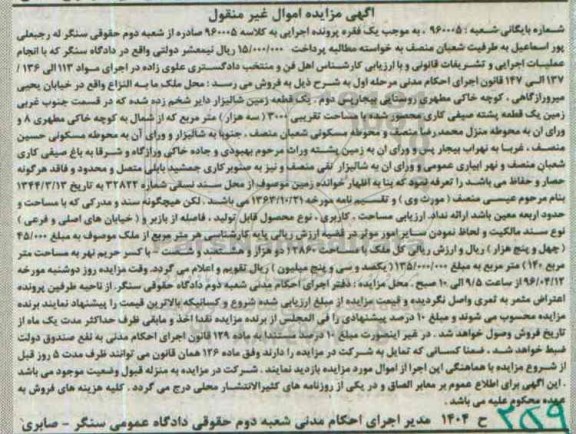 آگهی مزایده اموال غیر منقول
شماره بایگانی شعبه : ۹۶۰۰۰۵ ، به موجب یک فقره پرونده اجرایی به کلاسه ۹۶۰۰۰۵ صادره از شعبه دوم حقوقی سنگر له رجبعلی
پور اسماعیل به طرفیت شعبان منصف به خواسته مطالبه پرداخت ۱۵/۰۰۰/۰۰۰ ریال نیمعشر دولتی واقع در دادگاه سنگر که با انجام
عملیات اجرایی و تشریفات قانونی و با ارزیابی کارشناس اهل فن و منتخب دادگستری علوی زاده در اجرای مواد ۱۱۳ الی ۱۲۶ /
۱۳۷ الی ۱۴۷ قانون اجرای احکام مدنی مرحله اول به شرح ذیل به فروش می رسد : محل ملک ما به النزاع واقع در خیابان یحیی
میرورازگاهی ، کوچه خاکی مطهری روستایی بیجارپس دوم . یک قطعه زمین شالیزار دایر شخم زده شده که در قسمت جنوب غربی
زمین یک قطعه پشته صیفی کاری محصور شده با مساحت تقریبی ۳۰۰۰ ( سه هزار ) متر مربع که از شمال به کوچه خاکی مطهری ۸ و
ورای ان به محوطه منزل محمدرضا منصف و محوطه مسکونی شعبان منصف ، جنوبا به شالیزار و ورای آن به محوطه مسکونی حسین
منصف ، غربا به نهراب بیجار پس و ورای ان به زمین پشته وراث مرحوم بهبودی و جاده خاکی ورازگاه و شرقا به باغ صیفی کاری
شعبان منصف و نهر ابیاری عمومی و ورای ان به شالیزار تقی منصف و نیز به صنوبرکاری جمشید بابلی متصل و محدود و فاقد هرگونه
حصار و حفاظ می باشد را تعرفه نمود که بنا به اظهار خوانده زمین موصوف از محل سند نسقی شماره ۳۲۸۲۲ به تاریخ ۱۳۴۴/۳/۱۳
بنام مرحوم عیسی منصف ( مورث وی ) و تقسیم نامه مورخه ۱۳۶۳/۱۰/۲۱ می باشد . لکن هیچگونه سند و مدرکی که با مساحت و
حدود اربعه معین باشد ارائه نداد. ارزیابی مساحت ، کاربری ، نوع محصول قابل تولید ، فاصله از بازیر و ( خیابان های اصلی و فرعی )
نوع سند مالکیت و لحاظ نمودن سایر امور موثر در قضیه ارزش ریالی پایه کارشناسی هر متر مربع از ملک موصوف به مبلغ ۴۵/۰۰۰
( چهل و پنج هزار ) ریال و ارزش ریالی کل ملک با مساحت ۲۸۶۰ ( دو هزار و هشتصد و شصت - با کسر حریم نهر به مساحت متر
مربع ۱۴۰ ) متر مربع به مبلغ ۱۳۵/۰۰۰/۰۰۰ ( یکصد و سی و پنج میلیون ) ریال تقویم و اعلام می گردد. وقت مزایده روز دوشنبه مورخه
۹۶/۰۴/۱۲ از ساعت ۹/۵ الی ۱۰ صبح . محل مزایده : دفتر اجرای احکام مدنی شعبه دوم دادگاه حقوقی سنگر. از ناحیه طرفین پرونده
اعتراض مثمر به ثمری واصل نگردیده و قیمت مزایده از مبلغ ارزیابی شده شروع و کسانیکه بالاترین قیمت را پیشنهاد نمایند برنده
مزایده محسوب می شوند و مبلغ ۱۰ درصد پیشنهادی را فی المجلس از برنده مزایده نقدا اخذ و مابقی ظرف حداکثر مدت یک ماه از
تاریخ فروش وصول خواهد شد . در غیر اینصورت مبلغ ۱۰ درصد مستندا به ماده ۱۲۹ قانون اجرای احکام مدنی به نفع صندوق دولت
ضبط خواهد شد . ضمنا کسانی که تمایل به شرکت در مزایده را دارند وفق ماده ۱۲۶ همان قانون می توانند ظرف مدت ۵ روز قبل
از شروع مزایده با هماهنگی این اجرا از اموال مورد مزایده بازدید نمایند . شرکت در مزایده به منزله قبول وضعیت موجود می باشد
. این آگهی برای اطلاع عموم بر معابر الصاق و در یکی از روزنامه های کثیرالانتشار محلی درج می گردد . کلیه هزینه های فروش به
عهده محکوم علیه می باشد .
۲۵۹ ح ۱۴۰۴ مدیر اجرای احکام مدنی شعبه دوم حقوقی دادگاه عمومی سنگر - صابری